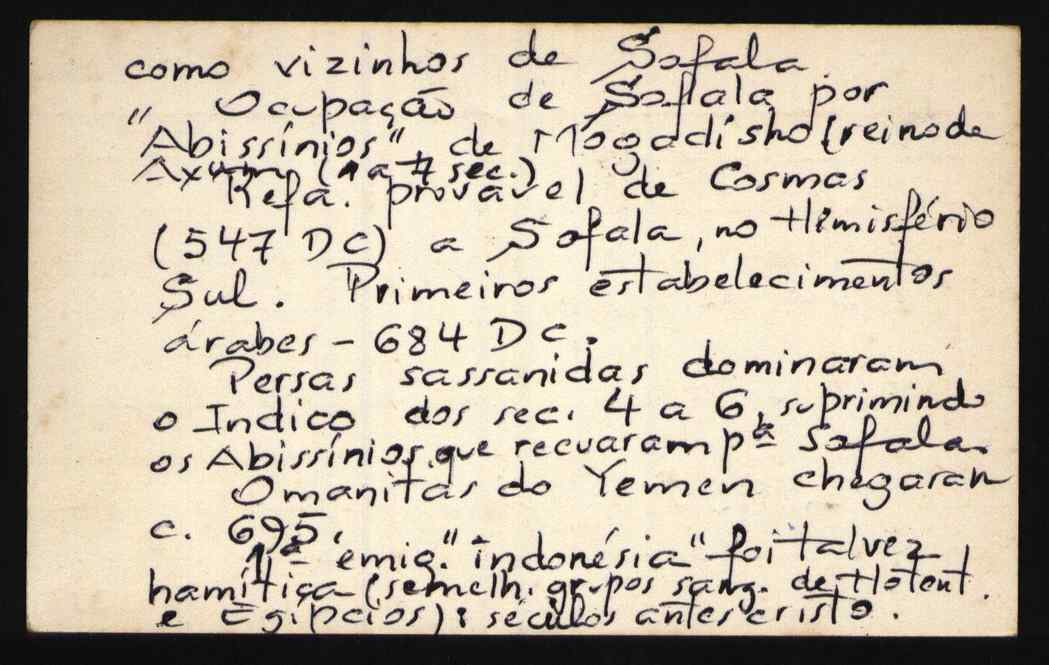 como vizinhos de Sofala.
Ocupação de Sofala por
"Abissínios" de Mogadisho (reino de
Axum (1 a 7 sec.)
Refa. provável de Cosmas
(547 DC) a Sofala, no Hemisfério
Sul. Primeiros estabelecimentos
árabes - 684 DC.
Persas sassanidas dominaram
o Indico dos sec. 4 a 6, suprimindo
os Abissínios que recuaram pª Sofala.
Omanitas do Yemen chegaram
c. 695.
1ª emig. "indonésia" foi talvez
hamítica (semelh. grupos sang. de Hotent.
e Egipcios): séculos antes cristo.